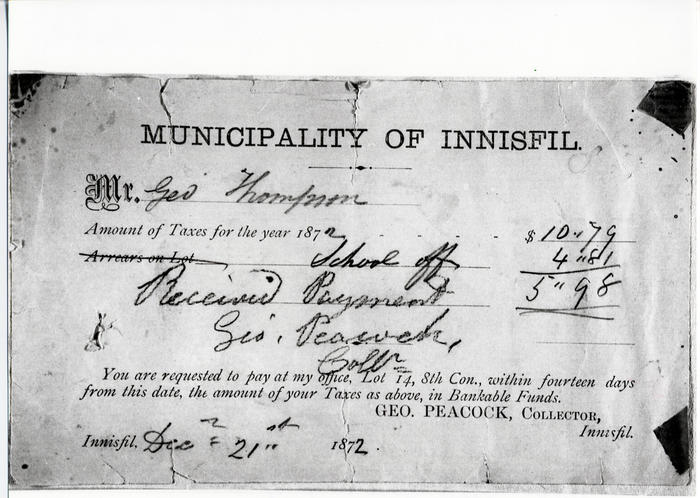 MUNICIPALITY OF INNISFIL.
Mr. Geo Thompson
Amount of Taxes for the year 1872 $ 10.79
Arrears on Lot School off 4 "81
Received Payment 5 "98
Geo. Peacock,
Collr
You are requested to pay at my office, Lot 14, 8th Con., within fourteen days
from this date, the amount of your Taxes as above, in Bankable Funds.
GEO. PEACOCK, COLLECTOR,
Innisfil.
Innisfil. Decr 21st 1872.